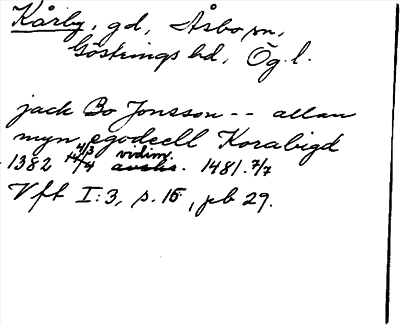 Kårby, gd, Åsbo sn,
Göstrings hd, Ög. l.
jack Bo Jonsson -- allan
myn egodeell Korabigd
1382 14/4 4/3 vidim. avskr. 1481. 7/7
Vft I:3, s. 15, pb 29.